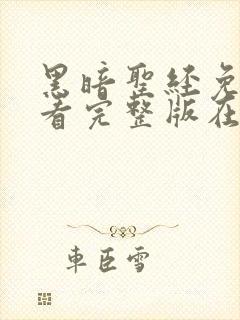 黑暗聖经免
看完整版在
车臣雪